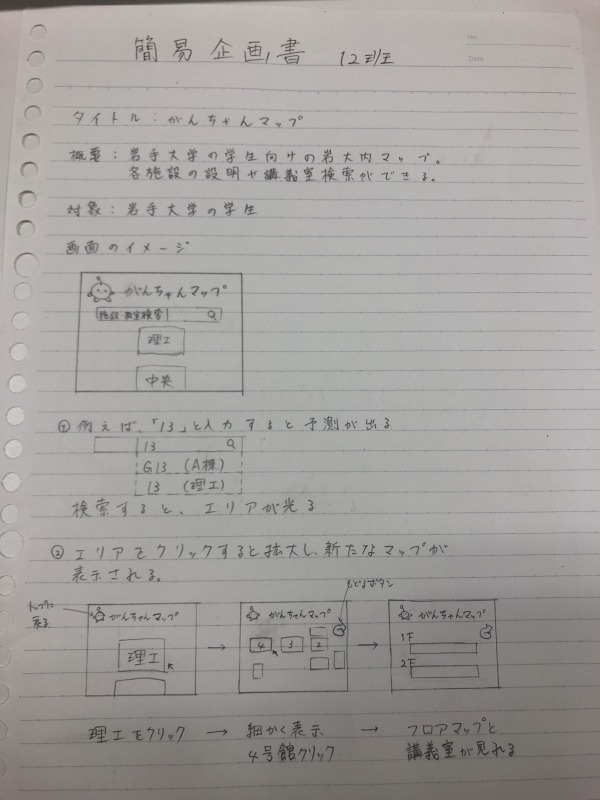 簡易企画書 12班
No.
Date
タイトル：がんちゃんマップ
概要：岩手大学の学生向けの岩大内マップ。
各施設の説明や講義室検索ができる。
対象：岩手大学の学生
画面のイメージ
がんちゃんマップ
施設・教室検索
理工
中央
① 例えば、「13」と入力すると予測が出る
13
G13 (A棟)
13 (理工)
検索すると、エリアが光る
② エリアをクリックすると拡大し、新たなマップが
表示される。
トップに
戻る
がんちゃんマップ
理工
→
もどるボタン
がんちゃんマップ
4 3 2
→
がんちゃんマップ
1F
2F
理工をクリック → 細かく表示 → フロアマップと
4号館クリック 講義室が見れる